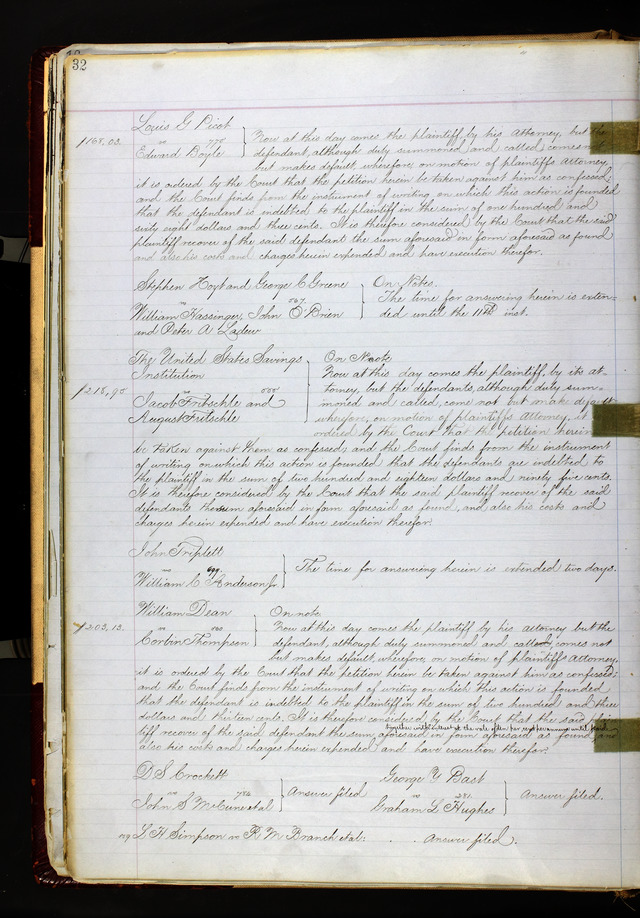 32
Louis G Picot
$168,03. vs 775 Now at this day comes the plaintiff by his Attorney, but the
Edward Boyle defendant, although duly summoned and called, comes not
but makes default, wherefore, on motion of plaintiffs Attorney
it is ordered by the Court that the petition herein be taken against him as confessed
and the Court finds from the instrument of writing on which this action is founded
that the defendant is indebted to the plaintiff in the sum of one hundred and
sixty eight dollars and three cents. It is therefore considered by the Court that the said
plaintiff recover of the said defendant the sum aforesaid in form aforesaid as found
and also his costs and charges herein expended and have execution therefor.
Stephen Hoyt and George C Greene On Notes.
vs 767 The time for answering herein is exten-
William Hassinger, John O'Brien ded until the 11th inst.
and Peter A Ladew
The United States Savings On Note
Institution Now at this day comes the plaintiff, by its at-
$218,95 vs torney, but the defendants, although duly sum-
Jacob Fritschle and moned and called, come not but make default
August Fritschle wherefore, on motion of plaintiffs Attorney, it is
ordered by the Court that the petition herein
be taken against them as confessed, and the Court finds from the instrument
of writing on which this action is founded that the defendants are indebted to
the plaintiff in the sum of two hundred and eighteen dollars and ninety five cents.
It is therefore considered by the Court that the said plaintiff recover of the said
defendants the sum aforesaid in form aforesaid as found, and also his costs and
charges herein expended and have execution therefor.
John Triplett
vs 699 The time for answering herein is extended two days.
William C Anderson Jr
William Dean On note
$203,13. vs Now at this day comes the plaintiff by his attorney but the
Corbin Thompson defendant, although duly summoned and called, comes not
but makes default, wherefore, on motion of plaintiffs Attorney,
it is ordered by the Court that the petition herein be taken against him as confessed;
and the Court finds from the instrument of writing on which this action is founded
that the defendant is indebted to the plaintiff in the sum of two hundred and three
dollars and thirteen cents. It is therefore considered by the Court that the said plain-
together with interest at the rate of ten per cent per annum until paid
tiff recover of the said defendant the sum aforesaid in form aforesaid as found, and
also his costs and charges herein expended and have execution therefor.
D S Crockett George Y Bast
vs 784 Answer filed vs 291 Answer filed.
John S McCune et al Graham L Hughes
719 L H Simpson vs R M Branch et al: . . Answer filed.